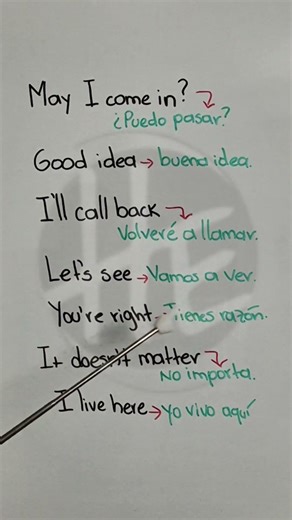 May I come in? →
¿Puedo pasar?
Good idea → buena idea.
I'll call back →
Volveré a llamar.
Let's see → Vamos a ver.
You're right → Tienes razón.
It doesn't matter →
No importa.
I live here → Yo vivo aquí